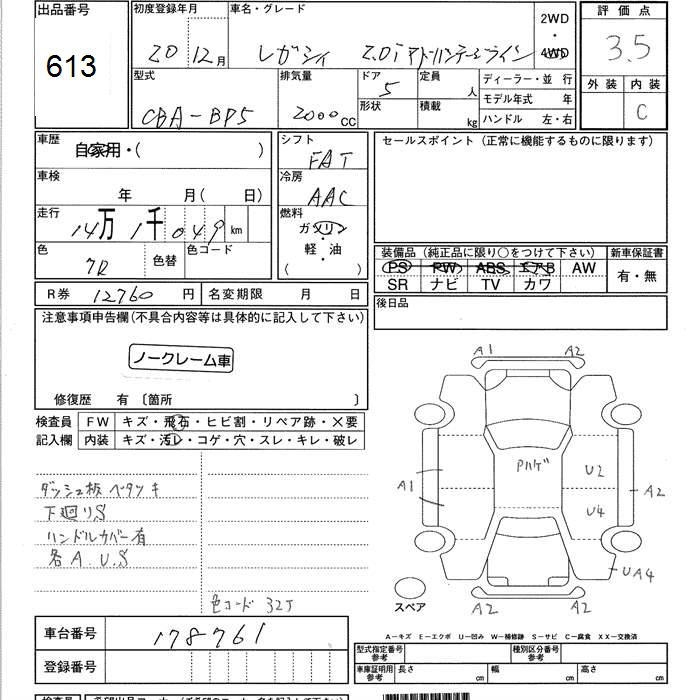 出品番号 初度登録年月 車名・グレード 2WD・4WD 評価点
613 20 12月 レガシィ 2.0i アドバンテージライン 3.5
外装 内装
C
型式 排気量 ドア 定員 人 ディーラー・並 行
CBA-BP5 2000cc 5 形状 積載 kg モデル年式 年
ハンドル 左・右
車歴 自家用・( ) シフト FAT セールスポイント (正常に機能するものに限ります)
車検 年 月( 日) 冷房 AAC
走行 14万1千049km 燃料 ガソリン・軽・油 ( )
色 色替 色コード
装備品 (純正品に限り○をつけて下さい) 新車保証書
PS PW ABS エアB AW 有・無
SR ナビ TV カワ
R券 12760円 名変期限 月 日 後日品
注意事項申告欄(不具合内容等は具体的に記入して下さい)
ノークレーム車
修復歴 有 〔箇所 〕
検査員 FW キズ・飛石・ヒビ割・リペア跡・×要
記入欄 内装 キズ・汚レ・コゲ・穴・スレ・キレ・破レ
ダッシュ板 ベタツキ
下廻りS
ハンドルカバー有
各A.U.S
色コード 32J
A1 A2
Pハゲ U2
A1 U4 A2
UA4
スペア A2 A2
A-キズ E-エクボ U-凹み W-補修跡 S-サビ C-腐食 XX-交換済
車台番号 178761
登録番号
型式指定番号 参考 種別区分番号 参考
車庫証明用 参考 長さ cm 幅 cm 高さ cm